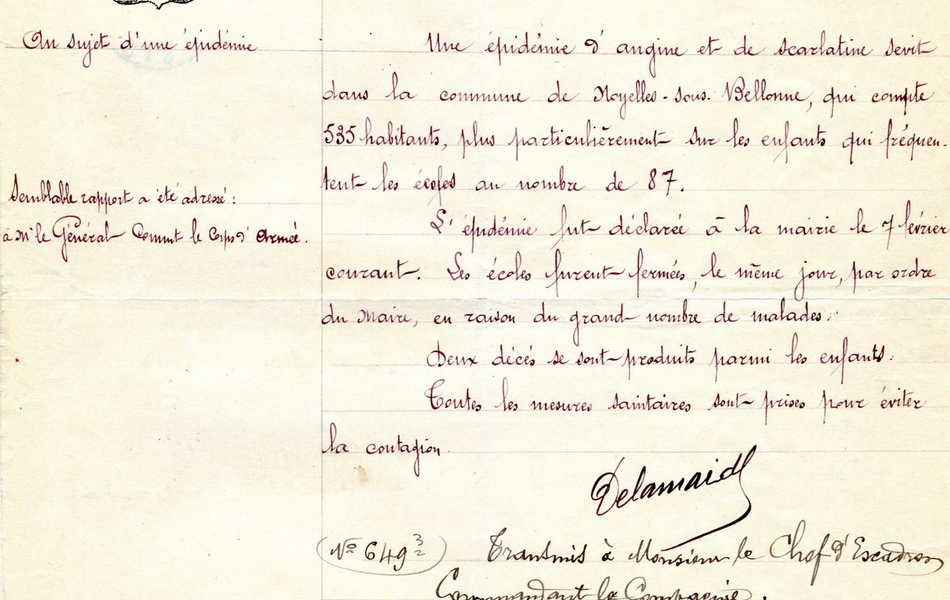 Au sujet d'une épidémie
Semblable rapport a été adressé :
à Mr le Général Commt le Corps d'Armée.
Une épidémie d'angine et de scarlatine sevit
dans la commune de Noyelles-sous-Bellonne, qui compte
535 habitants, plus particulièrement sur les enfants qui fréquen-
tent les écoles au nombre de 87.
L'épidémie fut déclarée à la mairie le 7 février
courant. Les écoles furent fermées, le même jour, par ordre
du Maire, en raison du grand nombre de malades.
Deux décés se sont produits parmi les enfants.
Toutes les mesures sanitaires sont prises pour éviter
la contagion.
N° 649 3/2
Transmis à Monsieur le Chef d'Escadron
Commandant la Compagnie.